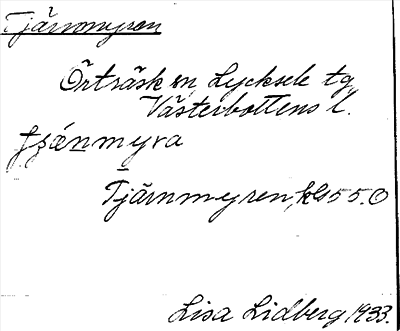 Tjärnmyren
Örträsk sn Lycksele tg
Västerbottens l.
Tjärnmyren, kls 55.0
Lisa Lidberg 1933.